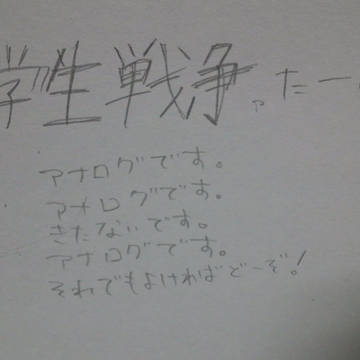 学生戦争。たー
アナログです。
アナログです。
きたないです。
アナログです。
それでもよければどーぞ!